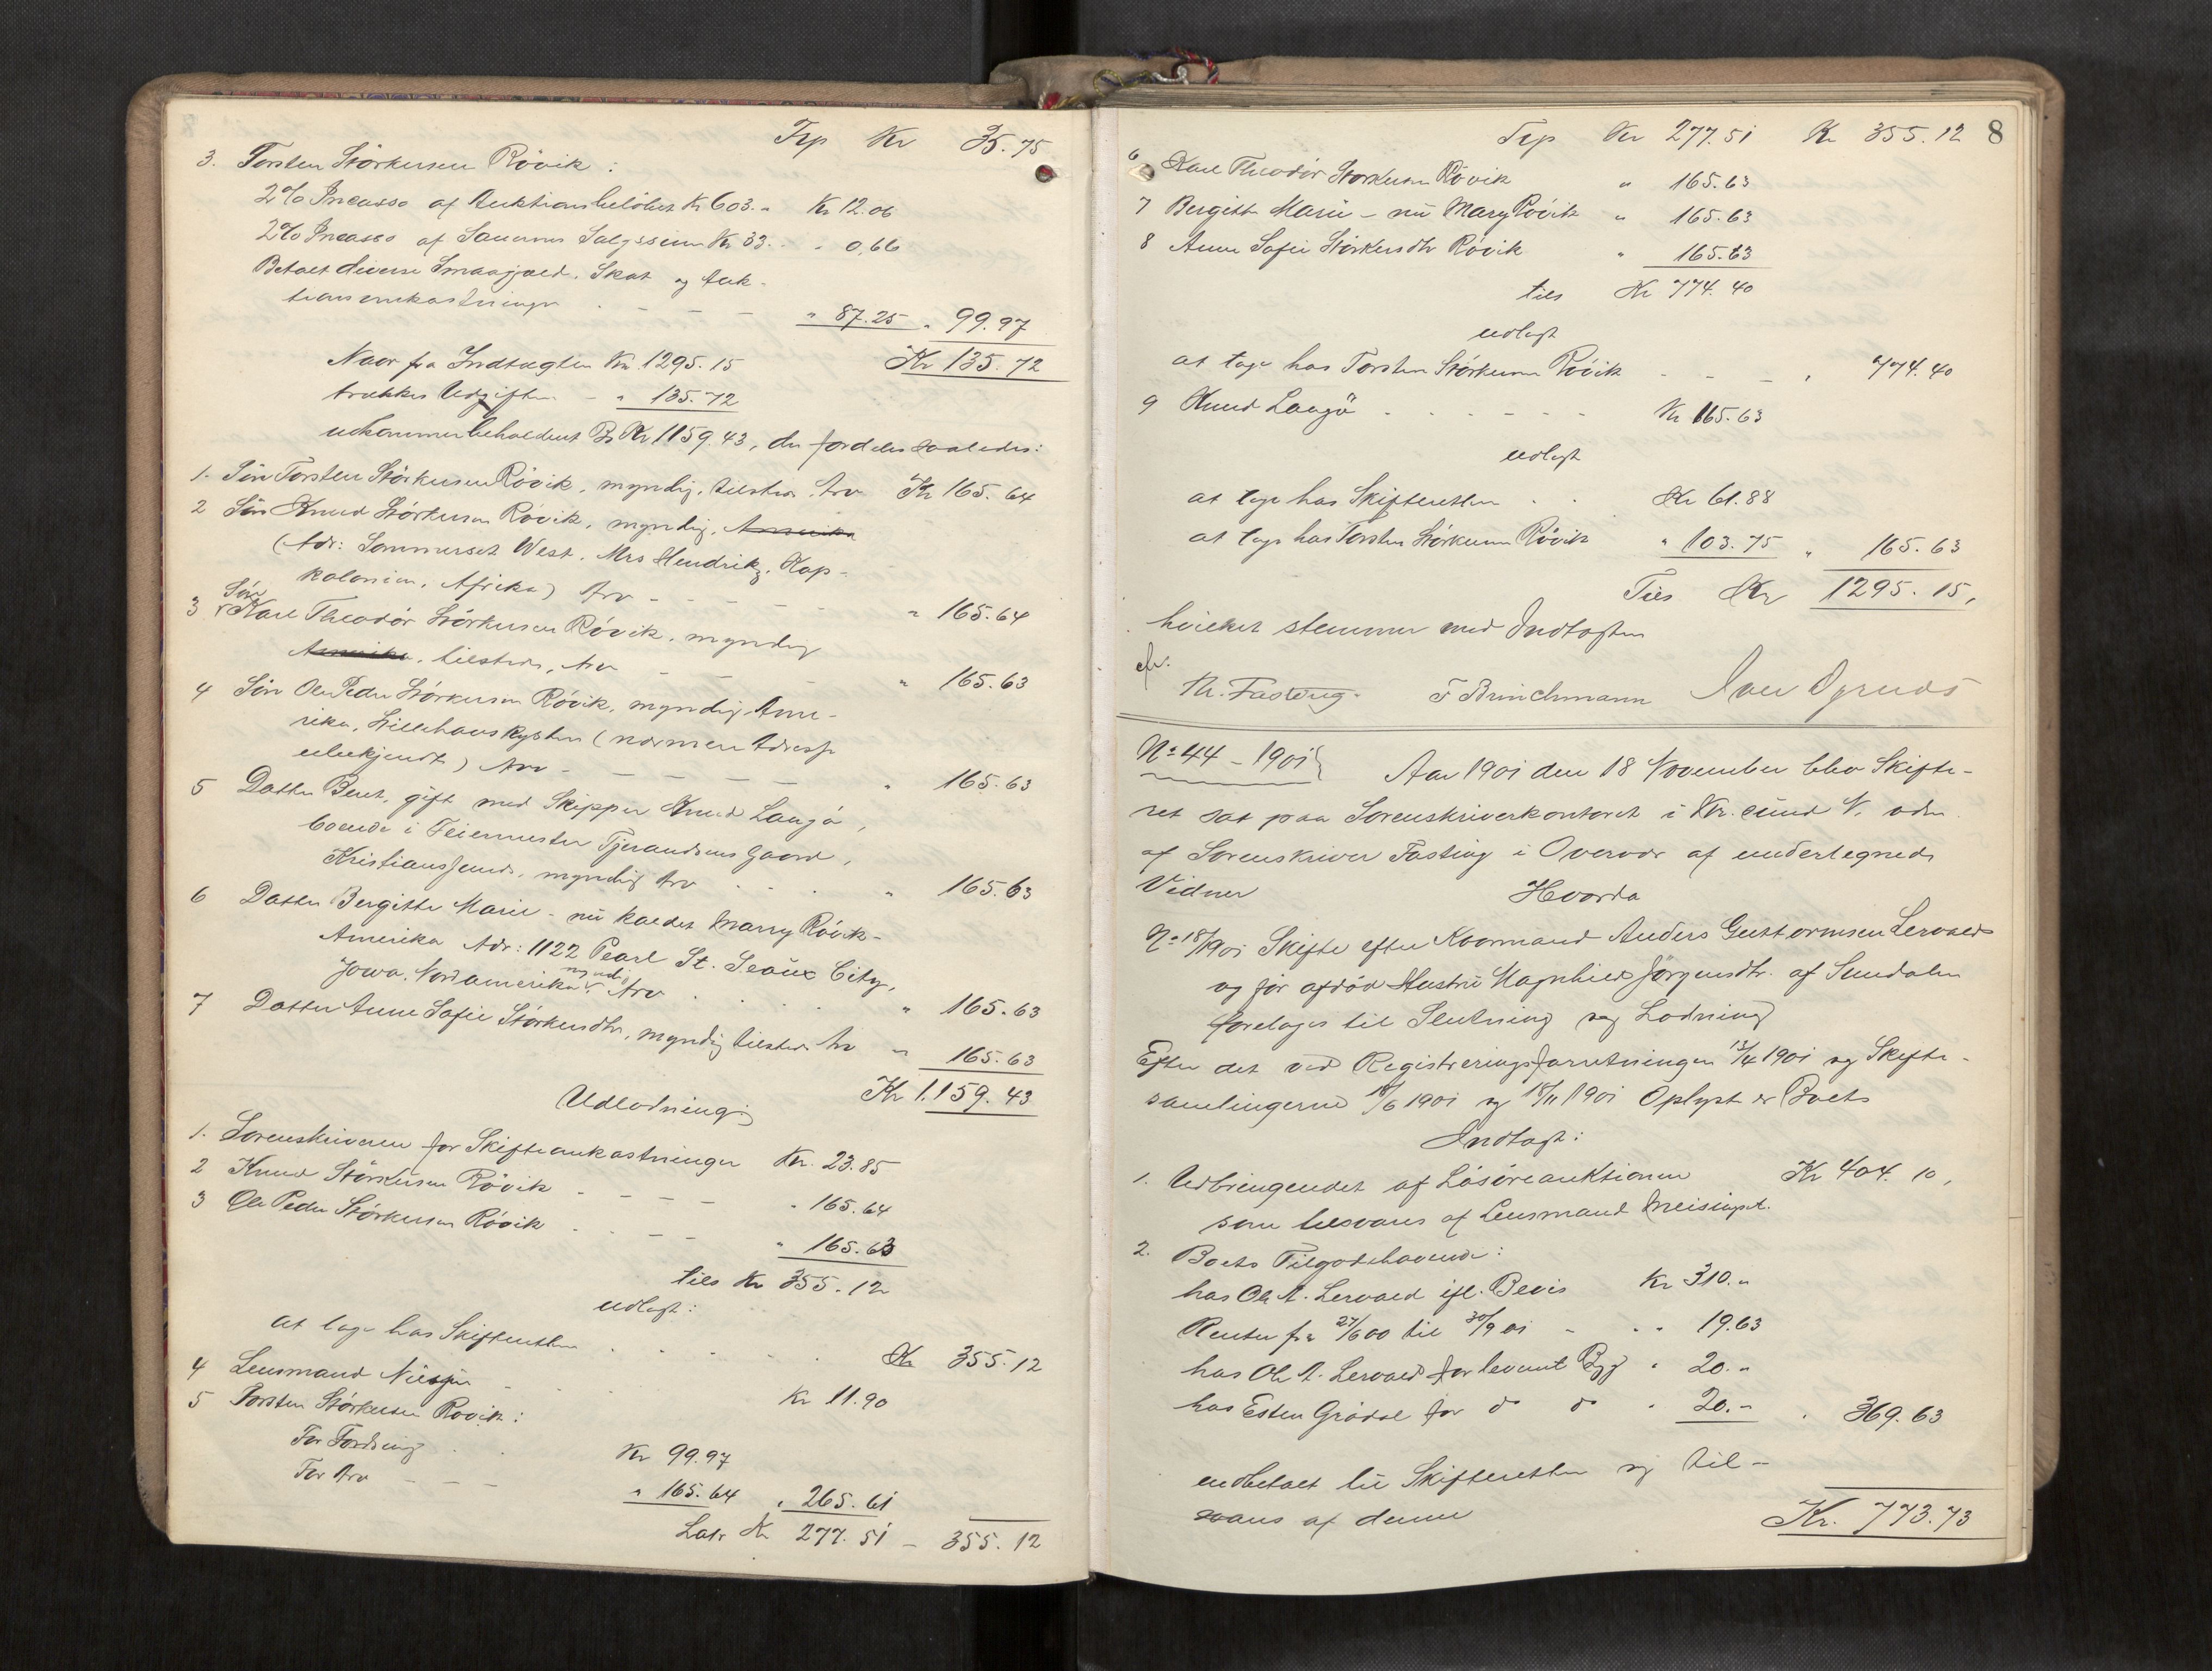 Trp Kr 35.75
3. Torsten Størkersen Røvik:
2% Incasso af Auktionsbeløbet Kr 603.- Kr 12.06
2% Incasso af Sauernes Salgssum Kr 33.- " 0,66
Betalt diverse Smaagjæld, Skat og Auk-
tionsomkostninger - - - " 87.25 " 99.97
Kr 135.72
Naar fra Indtægten Kr 1295.15
trækkes Udgiften - " 135.72
udkommer beholdent Bo Kr 1159.43, der fordeles saaledes:
1. Søn Torsten Størkersen Røvik, myndig, tilstede, Arv Kr 165.64
2 Søn Knud Størkersen Røvik, myndig, Amerika
(Adr: Sommerset West. Mrs Hendrikz, Kap-
kolonien, Afrika) Arv - - - " 165.64
3 Søn Karl Theodor Størkersen Røvik, myndig
Amerika, tilstede, Arv - - - " 165.63
4 Søn Ole Peder Størkersen Røvik, myndig, Ame-
rika, Stillehavskysten (nærmere Adresse
ubekjendt) Arv - - - " 165.63
5 Datter Berit, gift med Skipper Knud Langø,
boende i Feiermester Tjerandsens Gaard,
Kristianssund, myndig Arv " 165.63
6 Datter Bergitte Marie - nu kaldet Marry Røvik -
Amerika Adr: 1122 Pearl St. Seaux City,
Jowa. Nordamerika myndig Arv " 165.63
7 Datter Anne Sofie Størkersdtr, myndig tilstede Arv " 165.63
Kr 1.159.43
Udlodning
1. Sorenskriveren for Skifteomkostninger Kr. 23.85
2 Knud Størkersen Røvik - - - " 165.64
3 Ole Peder Størkersen Røvik - - - " 165.63
tils Kr 355.12
udlagt:
at tage hos Skifteretten Kr 355.12
4 Lensmand - - Kr 11.90
5 Torsten Størkersen Røvik:
For Fordring Kr 99.97
For Arv - - " 165.64 " 265.61
Latr Kr 277.51 - 355.12
Trp Kr 277.51 Kr 355.12 8
6 Karl Theodor Størkersen Røvik " 165.63
7 Bergitte Marie - nu Mary Røvik " 165.63
8 Anne Sofie Størkersdtr Røvik " 165.63
tils Kr 774.40
udlagt
at tage hos Torsten Størkersen Røvik - - - " 774.40
9 Knud Langø - - - Kr 165.63
udlagt
at tage hos Skifteretten Kr 61.88
at tage hos Torsten Størkersen Røvik " 103.75 " 165.63
Tils Kr 1295.15,
hvilket stemmer med Indtægten
Th. Fasting. F Brinchmann
No 44 - 1901 Aar 1901 den 18 November blev Skifte-
ret sat paa Sorenskriverkontoret i Kr.sund N. adm.
af Sorenskriver Fasting i Overvær af undertegnede
Vidner Hvorda
No 18/1901 Skifte efter Kaarmand Anders Guttormsen Lervald
og før afdød Hustru Magnhild Jørgensdtr. af Sundalen
foretages til Slutning og Lodning
Efter det ved Registreringsforretningen 13/4 1901 og Skifte-
samlingerne 18/6 1901 og 18/11 1901 Oplyst er Boets
Indtægt:
1. Udbringendet af Løsøreauktionen Kr 404.10,
som tilsvares af Lensmand Meisingset.
2. Boets Tilgodehavende:
hos Ole A. Lervald ifl. Bevis Kr 310.-
Renter fra 27/6 00 til 30/9 01 - - " 19.63
hos Ole A. Lervald for leveret Byg " 20.-
hos Esten Grødal for do do " 20.- " 369.63
indbetalt til Skifteretten og til-
svares af denne
Kr. 773.73